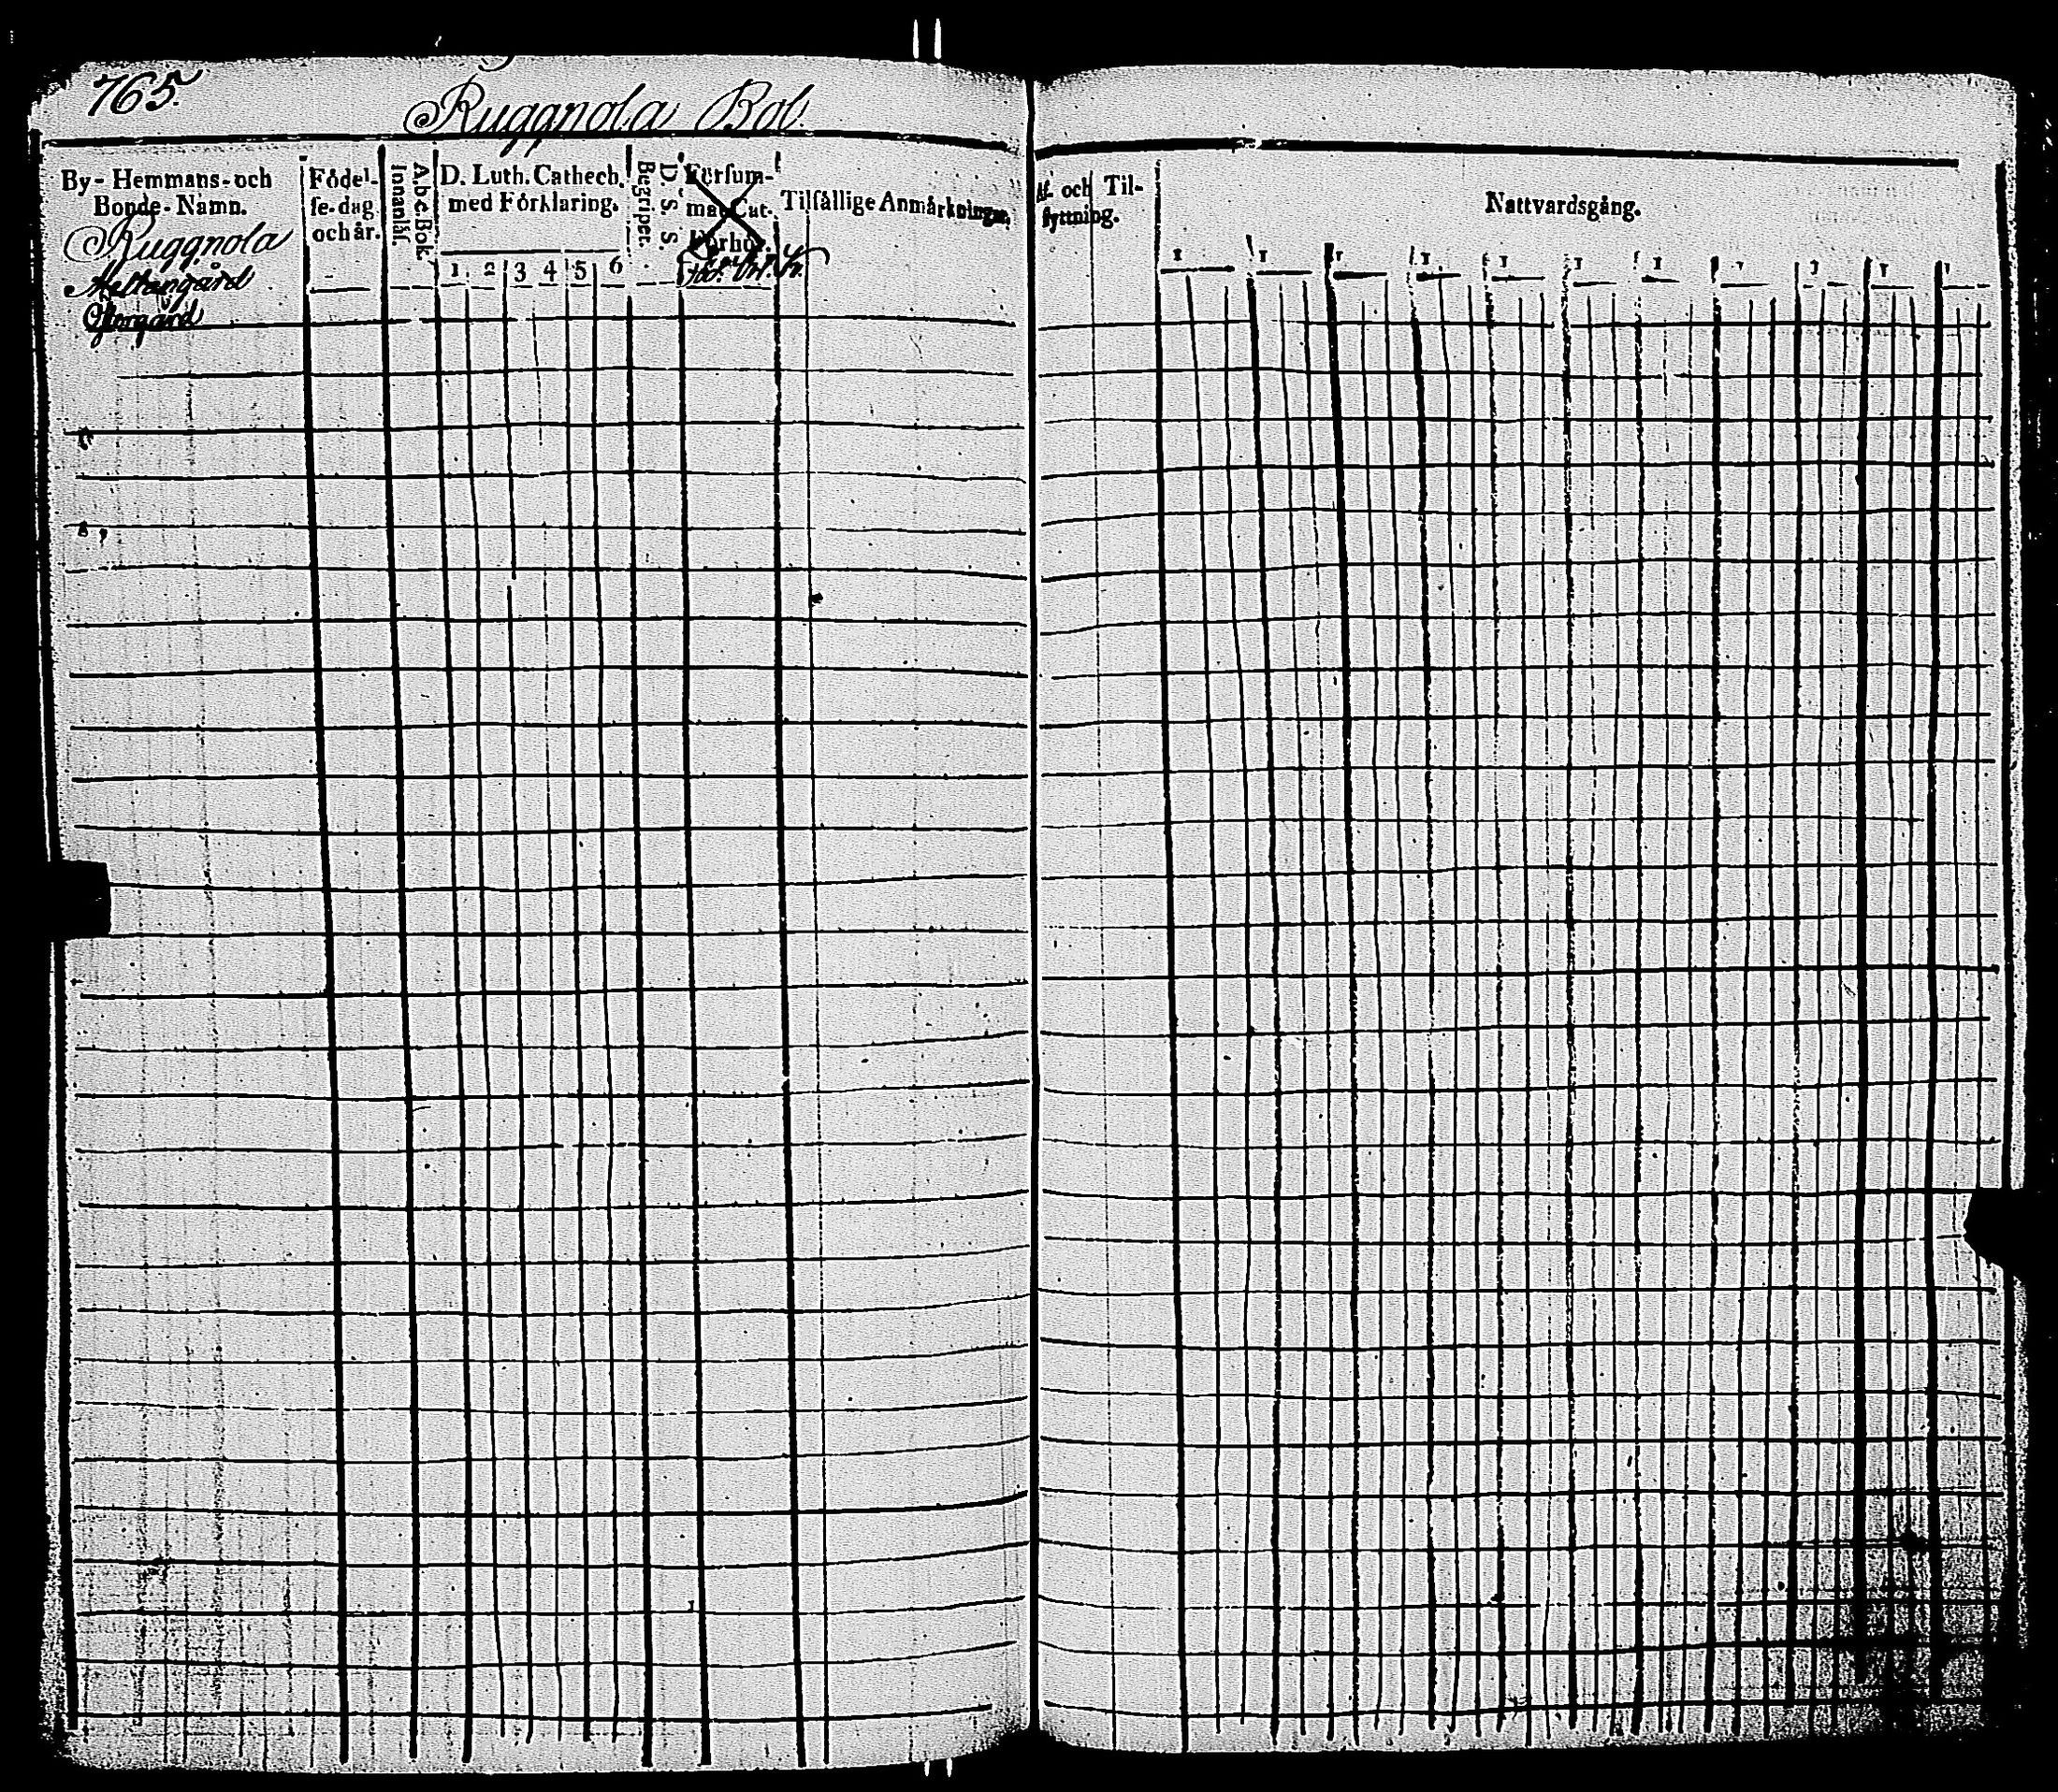 765.
Ruggnola Bol.
By- Hemmans- och
Bonde- Namn.
Ruggnola
Mellangård
Östergård
Födel-
se-dag
och år.
Innanläs.
A.b.c. Bok.
D. Luth. Cathech.
med Förklaring.
1 2 3 4 5 6
Begripet.
D. S. S.
Försum-
mat Cat.
Förhör.
Tilfällige Anmärkningar.
Af- och Til-
flyttning.
Nattvardsgång.
1 1 1 1 1 1 1 1 1 1 1